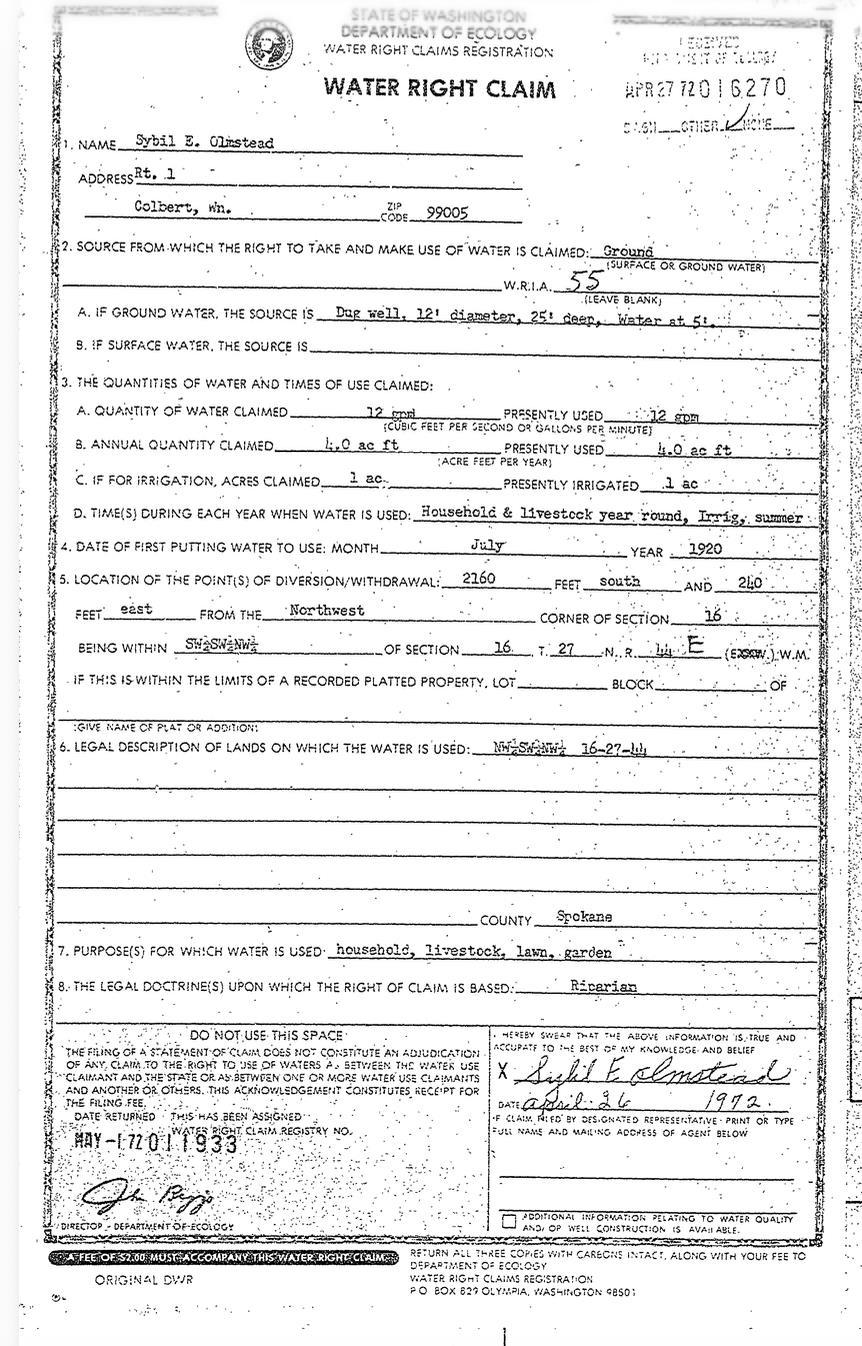 STATE OF WASHINGTON
DEPARTMENT OF ECOLOGY
WATER RIGHT CLAIMS REGISTRATION
WATER RIGHT CLAIM
RECEIVED
DEPARTMENT OF ECOLOGY
APR 27 72 016270
CASH OTHER NONE
1. NAME Sybil E. Olmstead
ADDRESS Rt. 1
Colbert, Wn. ZIP CODE 99005
2. SOURCE FROM WHICH THE RIGHT TO TAKE AND MAKE USE OF WATER IS CLAIMED: Ground
(SURFACE OR GROUND WATER)
W.R.I.A. 55
(LEAVE BLANK)
A. IF GROUND WATER, THE SOURCE IS Dug well, 12' diameter, 25' deep, Water at 5'.
B. IF SURFACE WATER, THE SOURCE IS
3. THE QUANTITIES OF WATER AND TIMES OF USE CLAIMED:
A. QUANTITY OF WATER CLAIMED 12 gpm PRESENTLY USED 12 gpm
(CUBIC FEET PER SECOND OR GALLONS PER MINUTE)
B. ANNUAL QUANTITY CLAIMED 4.0 ac ft PRESENTLY USED 4.0 ac ft
(ACRE FEET PER YEAR)
C. IF FOR IRRIGATION, ACRES CLAIMED 1 ac. PRESENTLY IRRIGATED 1 ac
D. TIME(S) DURING EACH YEAR WHEN WATER IS USED: Household & livestock year round, Irrig, summer
4. DATE OF FIRST PUTTING WATER TO USE: MONTH July YEAR 1920
5. LOCATION OF THE POINT(S) OF DIVERSION/WITHDRAWAL: 2160 FEET south AND 240
FEET east FROM THE Northwest CORNER OF SECTION 16
BEING WITHIN SW¼SW¼NW¼ OF SECTION 16 T. 27 N., R. 44 E (E. W.) W.M.
IF THIS IS WITHIN THE LIMITS OF A RECORDED PLATTED PROPERTY, LOT BLOCK OF
(GIVE NAME OF PLAT OR ADDITION)
6. LEGAL DESCRIPTION OF LANDS ON WHICH THE WATER IS USED: NW¼SW¼NW¼ 16-27-44
COUNTY Spokane
7. PURPOSE(S) FOR WHICH WATER IS USED: household, livestock, lawn, garden
8. THE LEGAL DOCTRINE(S) UPON WHICH THE RIGHT OF CLAIM IS BASED: Riparian
DO NOT USE THIS SPACE
THE FILING OF A STATEMENT OF CLAIM DOES NOT CONSTITUTE AN ADJUDICATION
OF ANY CLAIM TO THE RIGHT TO USE OF WATERS AS BETWEEN THE WATER USE
CLAIMANT AND THE STATE OR AS BETWEEN ONE OR MORE WATER USE CLAIMANTS
AND ANOTHER OR OTHERS. THIS ACKNOWLEDGEMENT CONSTITUTES RECEIPT FOR
THE FILING FEE.
DATE RETURNED THIS HAS BEEN ASSIGNED
WATER RIGHT CLAIM REGISTRY NO.
MAY -1 72 011933
DIRECTOR - DEPARTMENT OF ECOLOGY
I HEREBY SWEAR THAT THE ABOVE INFORMATION IS TRUE AND
ACCURATE TO THE BEST OF MY KNOWLEDGE AND BELIEF
X Sybil E Olmstead
DATE April 26 1972
IF CLAIM FILED BY DESIGNATED REPRESENTATIVE, PRINT OR TYPE
FULL NAME AND MAILING ADDRESS OF AGENT BELOW
ADDITIONAL INFORMATION RELATING TO WATER QUALITY
AND/OR WELL CONSTRUCTION IS AVAILABLE.
A FEE OF $2.00 MUST ACCOMPANY THIS WATER RIGHT CLAIM
RETURN ALL THREE COPIES WITH CARBONS INTACT, ALONG WITH YOUR FEE TO
DEPARTMENT OF ECOLOGY
WATER RIGHT CLAIMS REGISTRATION
P.O. BOX 829 OLYMPIA, WASHINGTON 98501
ORIGINAL DWR